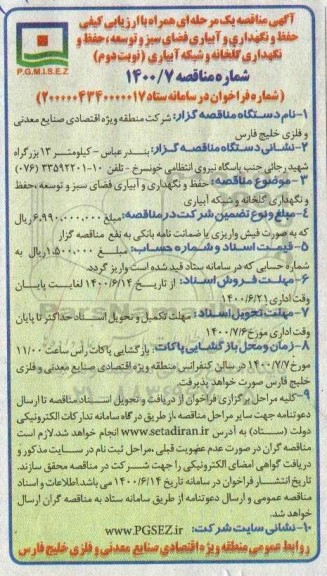 آگهی مناقصه یک مرحله ای همراه با ارزیابی کیفی
حفظ و نگهداری و آبیاری فضای سبز و توسعه، حفظ و
نگهداری گلخانه و شبکه آبیاری (نوبت دوم)
P.G.M.I.S.E.Z
شماره مناقصه ۱۴۰۰/۷
(شماره فراخوان در سامانه ستاد ۲۰۰۰۰۰۴۳۴۰۰۰۰۰۱۷)
۱-نام دستگاه مناقصه گزار: شرکت منطقه ویژه اقتصادی صنایع معدنی
و فلزی خلیج فارس
۲-نشانی دستگاه مناقصه گزار: بندرعباس – کیلومتر ۱۳ بزرگراه
شهید رجائی جنب پاسگاه نیروی انتظامی خونسرخ - تلفن ۱۰-۳۳۵۹۲۲۰۱ (۰۷۶)
۳-موضوع مناقصه: حفظ و نگهداری و آبیاری فضای سبز و توسعه ،حفظ
و نگهداری گلخانه و شبکه آبیاری
۴-مبلغ و نوع تضمین شرکت در مناقصه: ۶.۹۹۰.۰۰۰.۰۰۰ریال می باشد
که به صورت فیش واریزی یا ضمانت نامه بانکی به نفع مناقصه گزار
۵-قیمت اسناد و شماره حساب: مبلغ ۱.۵۰۰.۰۰۰ریال به
شماره حسابی که در سامانه ستاد قید شده است واریز گردد
۶-مهلت فروش اسناد: از تاریخ ۱۴۰۰/۶/۱۴ لغایت پایان
وقت اداری ۱۴۰۰/۶/۲۱
۷-مهلت تحویل اسناد: مهلت تکمیل و تحویل اسناد حداکثر تا پایان
وقت اداری مورخ ۱۴۰۰/۷/۶
۸-زمان و محل بازگشایی پاکات: بازگشایی پاکات رأس ساعت ۱۱/۰۰
مورخ ۱۴۰۰/۷/۷ در سالن کنفرانس منطقه ویژه اقتصادی صنایع معدنی و فلزی
خلیج فارس صورت خواهد پذیرفت.
۹-کلیه مراحل برگزاری فراخوان از دریافت و تحویل اسناد مناقصه تا ارسال
دعوتنامه جهت سایر مراحل مناقصه ،از طریق درگاه سامانه تدارکات الکترونیکی
دولت (ستاد) به آدرس www.setadiran.ir انجام خواهد شد.لازم است
مناقصه گران در صورت عدم عضویت قبلی ،مراحل ثبت نام در سایت مذکور و
دریافت گواهی امضای الکترونیکی را جهت شرکت در مناقصه محقق سازند.
تاریخ انتشار فراخوان در سامانه تاریخ ۱۴۰۰/۶/۱۴ می باشد.اطلاعات و اسناد
مناقصه عمومی و ارسال دعوتنامه از طریق سامانه ستاد به مناقصه گران ارسال
خواهد شد.
۱۰-نشانی سایت شرکت: www.PGSEZ.ir
روابط عمومی منطقه ویژه اقتصادی صنایع معدنی و فلزی خلیج فارس